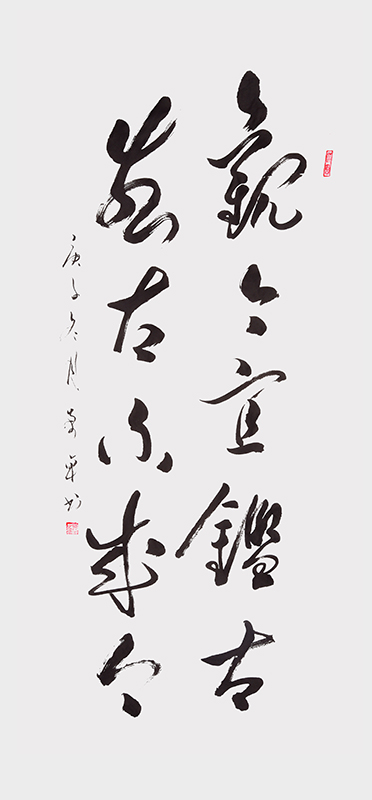 觀今宜鑑古
無古不成今
庚子冬月
书